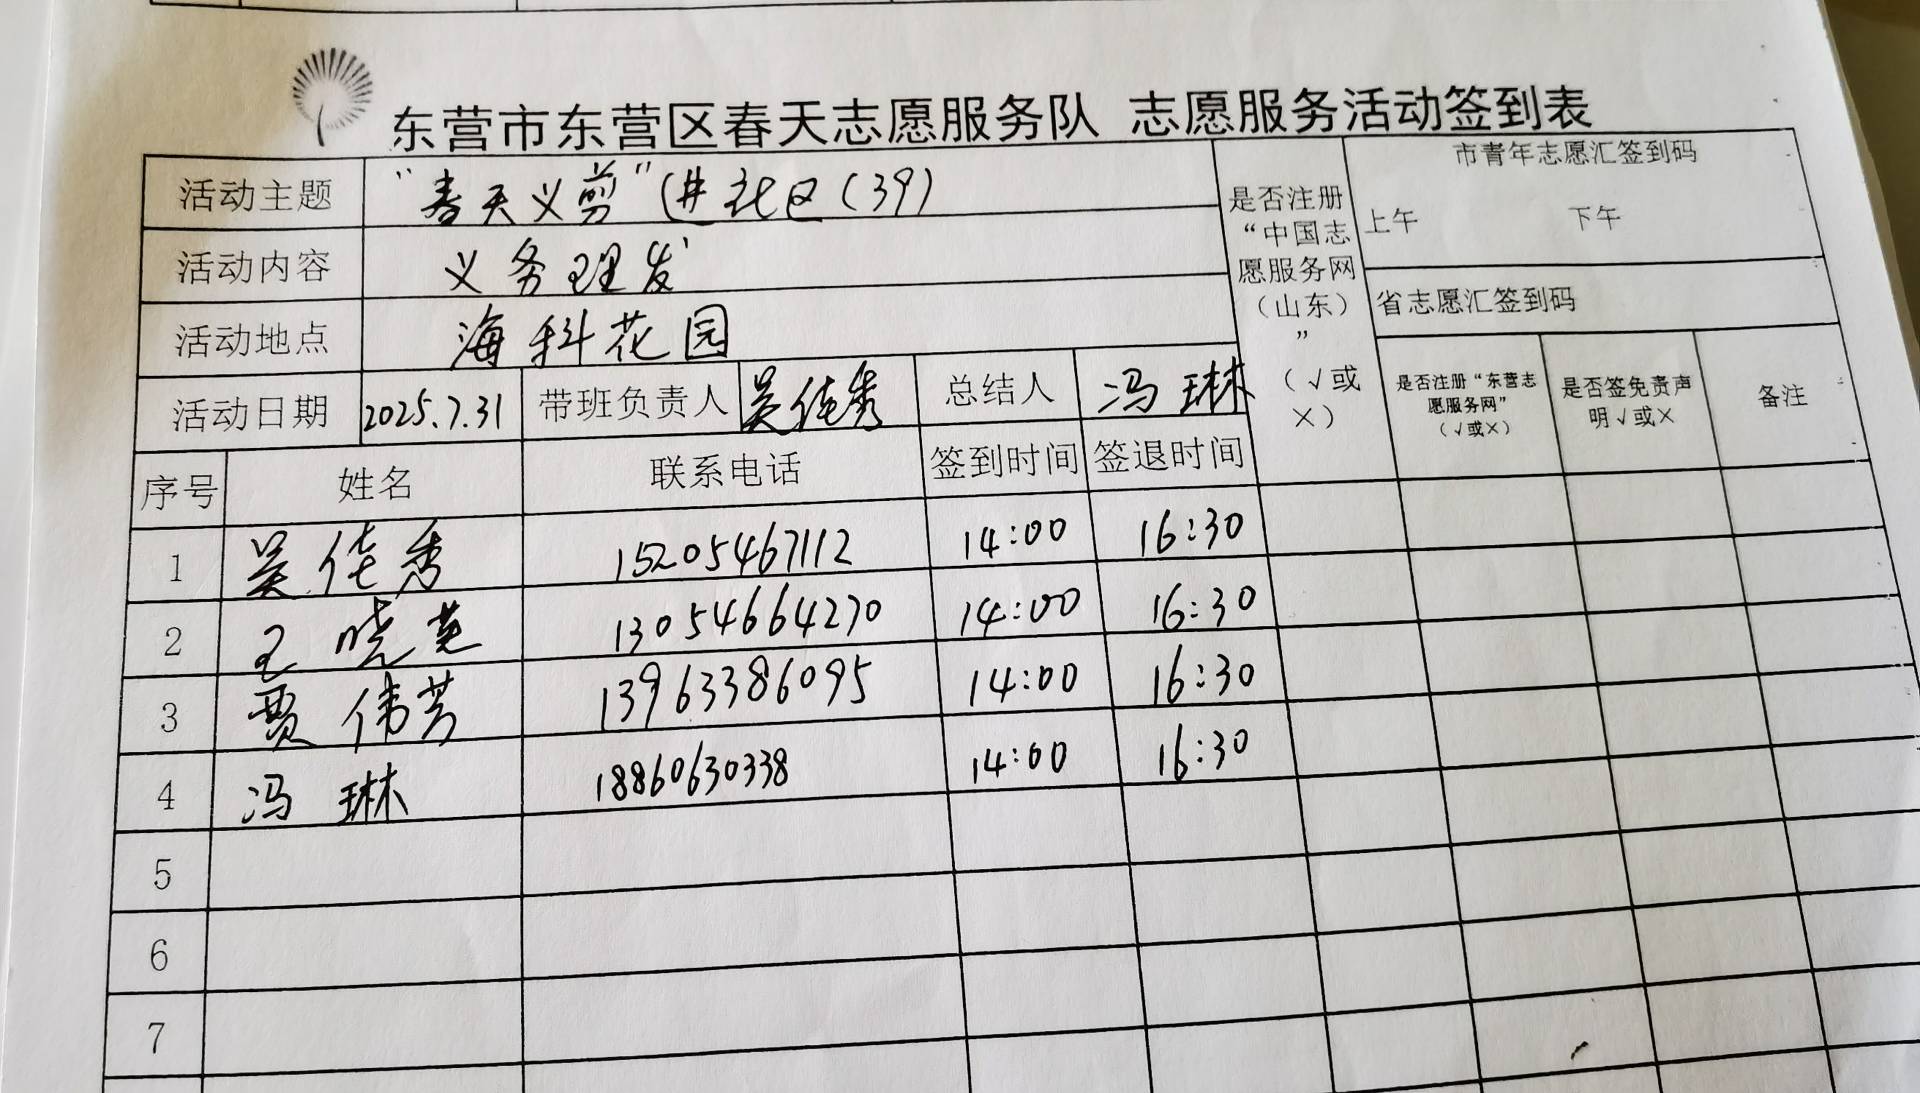 东营市东营区春天志愿服务队 志愿服务活动签到表
活动主题 “春天义剪”进社区(39)
活动内容 义务理发
活动地点 海科花园
活动日期 2025.7.31 带班负责人 吴佳秀 总结人 冯琳
是否注册
“中国志
愿服务网
(山东)
”
(√或
×)
市青年志愿汇签到码
上午 下午
省志愿汇签到码
是否注册“东营志
愿服务网”
(√或×)
是否签免责声
明√或×
备注
序号 姓名 联系电话 签到时间 签退时间
1 吴佳秀 15205467112 14:00 16:30
2 王晓 13054664270 14:00 16:30
3 贾伟芳 13963386095 14:00 16:30
4 冯琳 18860630338 14:00 16:30
5
6
7